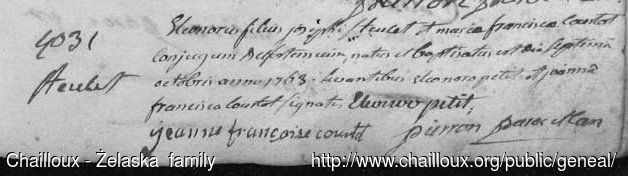 4031
Heulet
Eleonorus filius josephi Heulet et mariæ franciscæ Coustot
conjugum Septimum, natus et baptisatus est die septima
octobris anno 1763. Levantibus eleonoro petit et joanna
francisca Coustot signatis Eleonoro petit,
jeanne françoise coustot pierron paroc
Chailloux - Żelaska family http://www.chailloux.org/public/geneal/